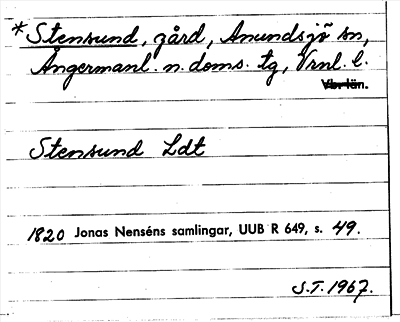 *Stensund, gård, Anundsjö sn,
Ångermanl. n. doms. tg, Vrnl. l.
Vbr län.
Stensund Ldt
1820 Jonas Nenséns samlingar, UUB R 649, s. 49.
S.T. 1967.